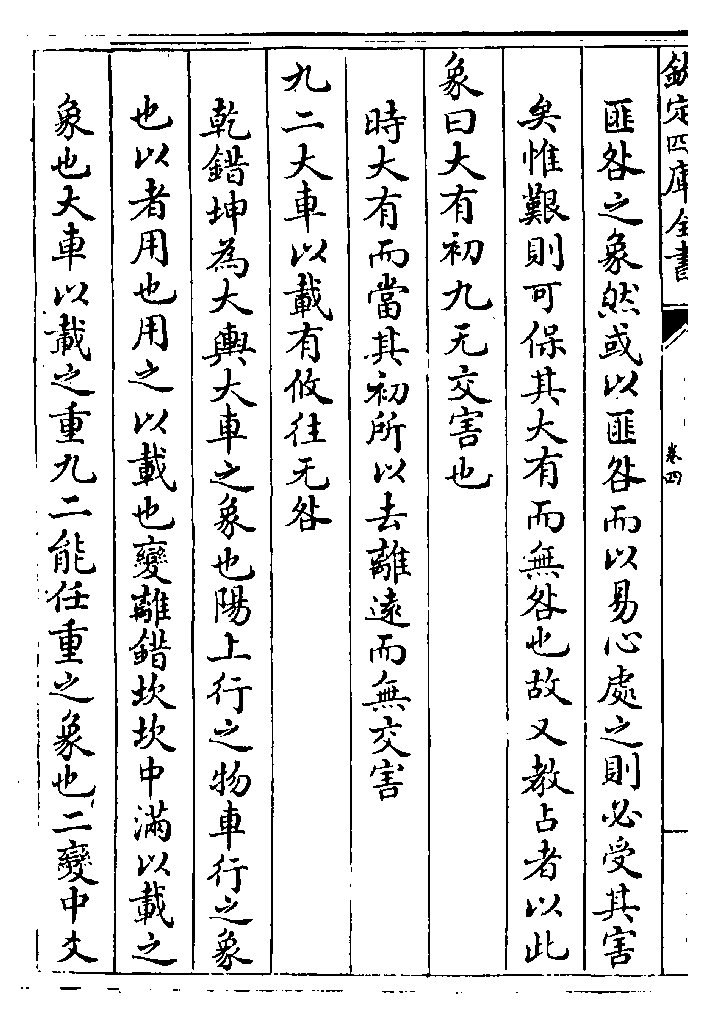 欽定四庫全書
卷四
匪咎之象然或以匪咎而以易心處之則必受其害
矣惟艱則可保其大有而無咎也故又教占者以此
象曰大有初九无交害也
時大有而當其初所以去離遠而無交害
九二大車以載有攸往无咎
乾錯坤為大輿大車之象也陽上行之物車行之象
也以者用也用之以載也變離錯坎坎中滿以載之
象也大車以載之重九二能任重之象也二變中爻